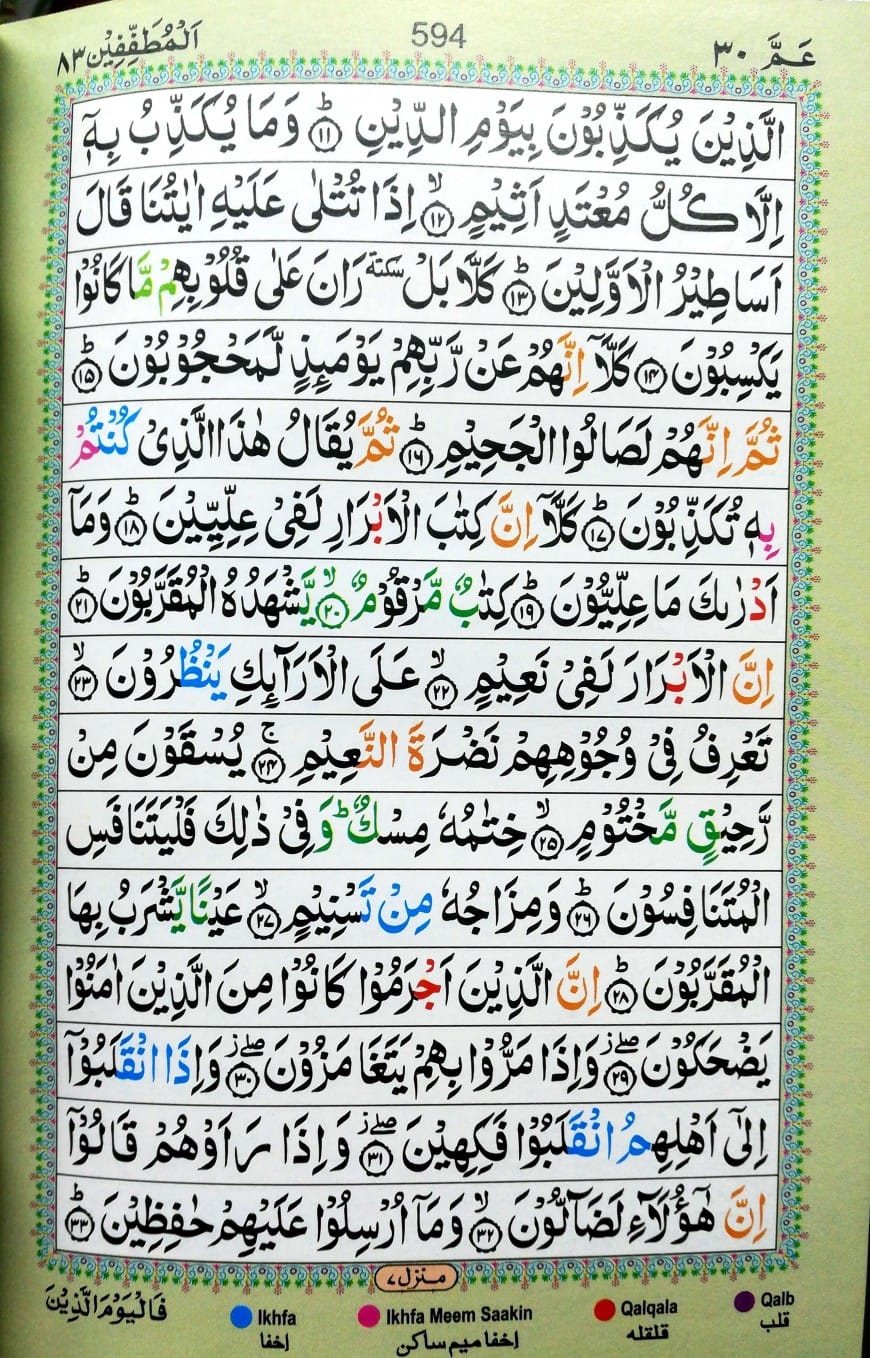 اَلْمُطَفِّفِيْن ٨٣
594
عَمَّ ٣٠
الَّذِيْنَ يُكَذِّبُوْنَ بِيَوْمِ الدِّيْنِ ؕ‏ ﴿۱۱﴾ وَمَا يُكَذِّبُ بِهٖۤ
اِلَّا كُلُّ مُعْتَدٍ اَثِيْمٍ ۙ‏ ﴿۱۲﴾ اِذَا تُتْلٰى عَلَيْهِ اٰيٰتُنَا قَالَ
اَسَاطِيْرُ الْاَوَّلِيْنَ ؕ‏ ﴿۱۳﴾ كَلَّا بَلْ سكتة رَانَ عَلٰى قُلُوْبِهِمْ مَّا كَانُوْا
يَكْسِبُوْنَ ‏ ﴿۱۴﴾ كَلَّاۤ اِنَّهُمْ عَنْ رَّبِّهِمْ يَوْمَٮِٕذٍ لَّمَحْجُوْبُوْنَ ؕ‏ ﴿۱۵﴾
ثُمَّ اِنَّهُمْ لَصَالُوا الْجَحِيْمِ ؕ‏ ﴿۱۶﴾ ثُمَّ يُقَالُ هٰذَا الَّذِىْ كُنْتُمْ
بِهٖ تُكَذِّبُوْنَ ؕ‏ ﴿۱۷﴾ كَلَّاۤ اِنَّ كِتٰبَ الْاَبْرَارِ لَفِىْ عِلِّيِّيْنَ ؕ‏ ﴿۱۸﴾ وَمَاۤ
اَدْرٰٮكَ مَا عِلِّيُّوْنَ ؕ‏ ﴿۱۹﴾ كِتٰبٌ مَّرْقُوْمٌ ۙ‏ ﴿۲۰﴾ يَّشْهَدُهُ الْمُقَرَّبُوْنَ ؕ‏ ﴿۲۱﴾
اِنَّ الْاَبْرَارَ لَفِىْ نَعِيْمٍ ۙ‏ ﴿۲۲﴾ عَلَى الْاَرَآٮِٕكِ يَنْظُرُوْنَ ۙ‏ ﴿۲۳﴾
تَعْرِفُ فِىْ وُجُوْهِهِمْ نَضْرَةَ النَّعِيْمِ ۚ‏ ﴿۲۴﴾ يُسْقَوْنَ مِنْ
رَّحِيْقٍ مَّخْتُوْمٍ ۙ‏ ﴿۲۵﴾ خِتٰمُهٗ مِسْكٌ ؕ وَفِىْ ذٰلِكَ فَلْيَتَنَافَسِ
الْمُتَنَافِسُوْنَ ؕ‏ ﴿۲۶﴾ وَمِزَاجُهٗ مِنْ تَسْنِيْمٍ ۙ‏ ﴿۲۷﴾ عَيْنًا يَّشْرَبُ بِهَا
الْمُقَرَّبُوْنَ ؕ‏ ﴿۲۸﴾ اِنَّ الَّذِيْنَ اَجْرَمُوْا كَانُوْا مِنَ الَّذِيْنَ اٰمَنُوْا
يَضْحَكُوْنَ ۖ ز ﴿۲۹﴾ وَاِذَا مَرُّوْا بِهِمْ يَتَغَامَزُوْنَ ۖ ز ﴿۳۰﴾ وَاِذَا انْقَلَبُوْۤا
اِلٰٓى اَهْلِهِمُ انْقَلَبُوْا فَكِهِيْنَ ۖ ز ﴿۳۱﴾ وَاِذَا رَاَوْهُمْ قَالُوْۤا
اِنَّ هٰٓؤُلَاۤءِ لَضَآلُّوْنَ ۙ‏ ﴿۳۲﴾ وَمَاۤ اُرْسِلُوْا عَلَيْهِمْ حٰفِظِيْنَ ؕ‏ ﴿۳۳﴾
منزل ٧
فَالْيَوْمَ الَّذِيْنَ
Ikhfa
إخفا
Ikhfa Meem Saakin
إخفا ميم ساكن
Qalqala
قلقله
Qalb
قلب